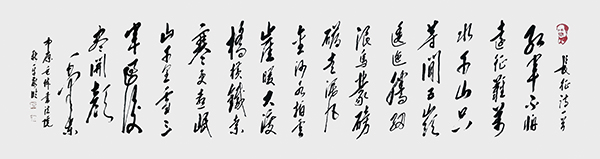 長征詩一首
紅軍不怕
遠征難萬
水千山只
等閒五嶺
逶迤騰細
浪烏蒙磅
礴走泥丸
金沙水拍雲
崖暖大渡
橋橫鐵索
寒更喜岷
山千里雪三
軍過後
盡開顏
毛澤東